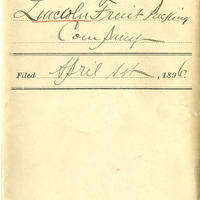 Lincoln Fruit Packing
Company
Filed April 1st, 1896.